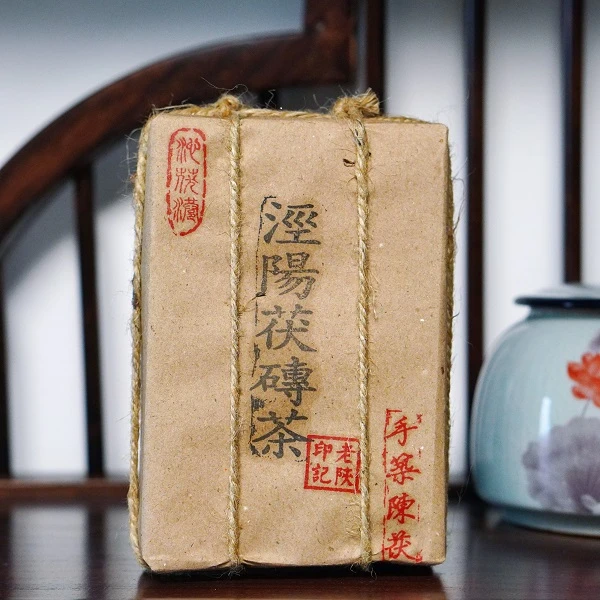 涇陽茯磚茶
老陝
印記
手築陳茯